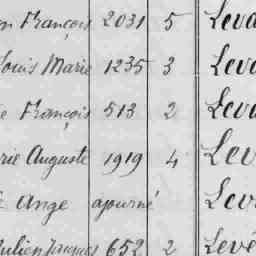 François 2031 5 Leva
Louis Marie 1235 3 Leva
François 513 2 Leva
Auguste 1919 4 Lev
Ange ajourné Lev
Julien Jacques 652 2 Levé